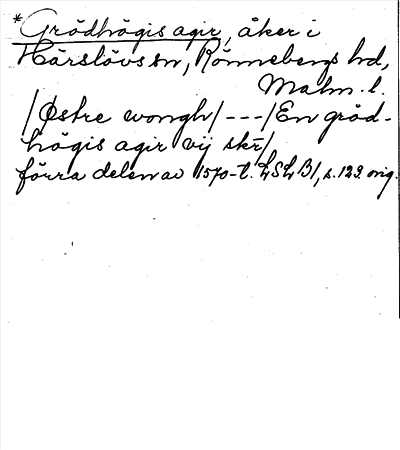 *Grödhögis agir, åker i
Härslövs sn, Rönnebergs hd,
Malm. l.
/Østre wongh/---/En gröd-
högis agir vij skr/
förra delen av 1570-t. LSLB1, s. 123. orig.